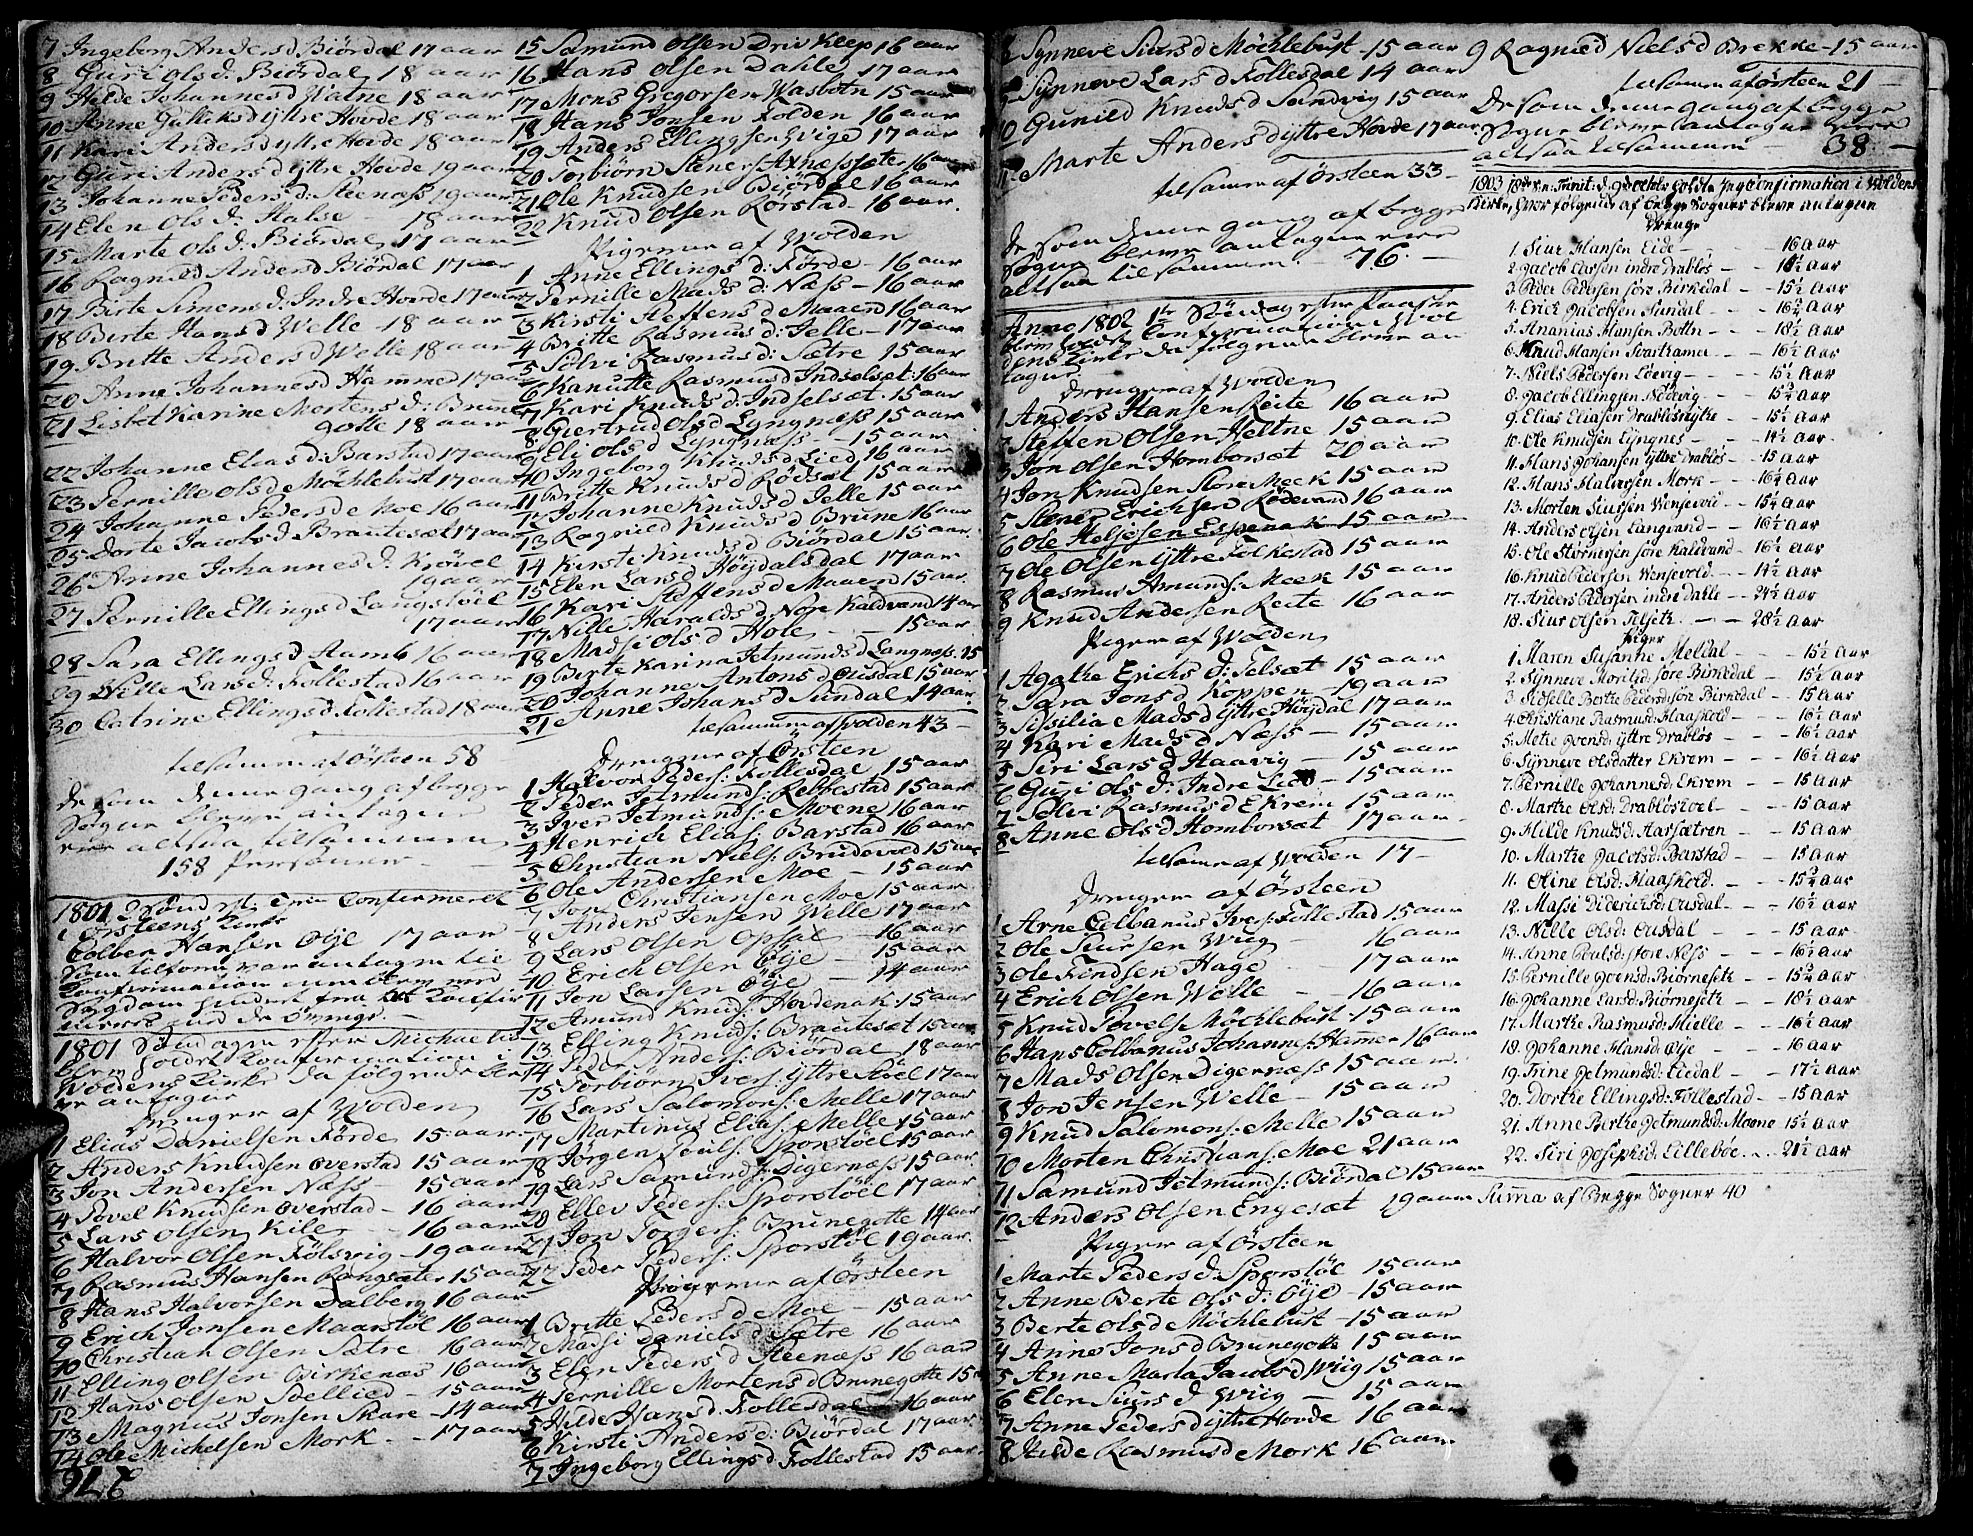 7 Ingeborg Anders d Biördal 17 aar
8 Guri ols d. Biördal 18 aar
9 Helde Johannes d Vatne 18 aar
10 Anne Gulleks d yttre Hovde 18 aar
11 Kari Anders d yttre Hovde 18 aar
12 Guri Anders d yttre Hovde 19 aar
13 Johanne Peders d. Steenæss 19 aar
14 Elen Ols d. Halse 18 aar
15 Marte ols d. Biördal 17 aar
16 Ragnild Anders d Biördal 17 aar
17 Birte Simens d. Indre Hovde 17 aar
18 Berte Hans d Welle 18 aar
19 Britte Anders d Welle 18 aar
20 Anne Johannes d Hammed 17 aar
21 Lisbet Karine Mortens d. Brune
gotte 18 aar
22 Johanne Elias d. Barstad 17 aar
23 Pernille ols d Möchlebust 17 aar
24 Johanne Peders d Moe 16 aar
25 Dorte Jacobs d Brautesæt 17 aar
26 Anne Johannes d. Krövel
19 aar
27 Pernille Ellings d Langstöel
17 aar
28 Sara Ellings d Aamb 16 aar
29 Nille Lars d. Follestad 16 aar
30 Catrine Ellings d Follestad 18 aar
tilsamm af Örsteen 58
De som denne gang af begge
Sogne bleve antagne
ere altsaa tilsammen
158 Personer
1801 Confirmeret
i Örsteens Kirke
Colben Hansen Öije 17 aar
1801 Söndagen efter Michaelis
blev holdet Confirmation i
Woldens Kirke da følgende ble
ve antagne
Drenger af Wolden
1 Elias Danielsen Förde 15 aar
2 Anders Knudsen overstad 15 aar
3 Jon Andersen Næss 15 aar
4 Povel Knudsen overstad 16 aar
5 Lars Olsen Kile 16 aar
6 Halvor Olsen Fölsvig 19 aar
7 Rasmus Hansen Rangsæter 15 aar
8 Hans Halvorsen Dalberg 16 aar
9 Erich Jonsen Maarstöl 16 aar
10 Christian Olsen Sætre 16 aar
11 Elling Olsen Birkenæs 16 aar
12 Hans Olsen Stellied 15 aar
13 Magnus Jonsen Skare 14 aar
14 Ole Michelsen Mork 17 aar
15 Samund Olsen Driv Kleep 16 aar
16 Hans Olsen Dahle 17 aar
17 Mons Gregorsen Wasbotn 15 aar
18 Hans Jonsen Folden 16 aar
19 Anders Ellingsen Wige 17 aar
20 Torbiörn Steners Axnæssæter 16 aar
21 Ole Knudsen Biördal 16 aar
22 Knud Olsen Rorstad 16 aar
Pigerne af Wolden
1 Anne Ellings d. Förde 16 aar
2 Pernille Mads d. Næss 16 aar
3 Kirsti Steffens d Maaen 16 aar
4 Britte Rasmus d. Jelle 17 aar
5 Sölvi Rasmus d. Sætre 15 aar
6 Kanutte Rasmus d. Indselsæt 16 aar
7 Kari Knuds d. Indselsæt 15 aar
8 Giertrud ols d Lyngnæss 15 aar
9 Eli ols d Lyngnæss 15 aar
10 Ingeborg Knuds d Lied 16 aar
11 Britte Knuds d Rödsæt 15 aar
12 Johanne Knuds d Jelle 15 aar
13 Ragnild Knuds d Brune 16 aar
14 Kirsti Knuds d Biördal 15 aar
15 Elen Lars d Höydalsdal 17 aar
16 Kari Steffens d Maaen 15 aar
17 Nille Haralds d Nore Kaldvand 14 aar
18 Madsi ols d Hole 15 aar
19 Birte Karina Jetmunds d Langnæss 15
20 Johanne Antons d Ousdal 15 aar
21 Anne Johans d Sundal 14 aar
tilsamm af Wolden 43
Drenger af Örsteen
1 Halvor Peders. Follesdal 15 aar
2 Peder Jetmunds. Rebbestad 15 aar
3 Iver Jetmunds. Moene 16 aar
4 Henrich Elias. Barstad 16 aar
5 Christian Niels. Brudevold 15 aar
6 Ole Andersen Moe 15 aar
7 Jon Christiansen Moe 15 aar
8 Anders Jensen Welle 17 aar
9 Lars Olsen Opsal 16 aar
10 Erich Olsen Öije 15 aar
11 Jon Larsen Öije 14 aar
12 Amund Knuds. Hovdenak 15 aar
13 Elling Knuds. Brautesæt 15 aar
14 Peder Anders. Biördal 18 aar
15 Torbiörn Ivers. yttre Støel 17 aar
16 Lars Salomons. Melle 17 aar
17 Martinus Elias. Melle 15 aar
18 Jörgen Pouls. Sporstöel 15 aar
19 Lars Samunds. Digernæss 15 aar
20 Ellev Peders. Sporstöel 17 aar
21 Jon Jörgens. Brunegotte 14 aar
22 Peder Peders. Sporstöl 19 aar
Pigerne af Örsteen
1 Britte Peders d Moe 15 aar
2 Madsi Daniels d Sætre 16 aar
3 Elen Peders d Steenæss 16 aar
4 Pernille Mortens d Brunegotte 15
5 Hilde Hans d. Follesdal 16 aar
6 Kirsti Anders d. Biördal 17 aar
7 Ingeborg Ellings d Follestad 15 aar
8 Synneve Siurs d Möchlebust 15 aar
9 Synneve Lars d Follesdal 14 aar
10 Gunild Knuds d Sundvig 15 aar
11 Marte Anders d yttre Hovde 17 aar
tilsamm af Örsteen 33
De som denne gang af begge
Sogne bleve antagne ere
altsaa tilsammen 76
Anno 1802 1te Söndag efter Paaske
blev holdt Confirmation i Wol
dens Kirke da følgende bleve an
tagne
Drenger af Wolden
1 Anders Hansen Reite 16 aar
2 Steffen Olsen Heltne 15 aar
3 Jon Olsen Homborsæt 20 aar
4 Jon Knudsen Store Meek 15 aar
5 Stener Erichsen Rödevand 16 aar
6 Ole Heljesen Espenak 15 aar
7 Ole Olsen yttre Folkestad 15 aar
8 Rasmus Amunds. Meek 15 aar
9 Knud Andersen Reite 16 aar
Pigerne af Wolden
1 Agathe Erichs d. Felsæt 15 aar
2 Sara Jons d Koppen 19 aar
3 Sissilia Mads d yttre Höydal 17 aar
4 Kari Mads d Næss 15 aar
5 Siri Lars d Haavig 15 aar
6 Guri Ols d. Indre Lied 15 aar
7 Sölvi Rasmus d Ekrem 15 aar
8 Anne Ols d Homborsæt 17 aar
tilsamm af Wolden 17
Drenger af Örsteen
1 Arne Colbanus Ivers. Follestad 15 aar
2 Ole Siursen Wiig 16 aar
3 Ole Findsen Hage 17 aar
4 Erich Olsen Welle 16 aar
5 Knud Povels. Möchlebust 15 aar
6 Hans Colbanus Johannes. Hamer 16 aar
7 Mads Olsen Digernæss 15 aar
8 Jon Jensen Welle 15 aar
9 Knud Salomons. Melle 15 aar
10 Morten Christians. Moe 21 aar
11 Samund Jetmunds. Biördal 15 aar
12 Anders Olsen Engesæt 19 aar
Pigerne af Örsteen
1 Marte Peders d. Sporstöl 15 aar
2 Anne Berte ols d. Öije 15 aar
3 Berte ols d Möchlebust 15 aar
4 Anne Jons d Brunegotte 15 aar
5 Anne Marta Jacobs d Wiig 15 aar
6 Elen Siurs d. Wiig 15 aar
7 Anne Peders d yttre Hovde 16 aar
8 Hilde Rasmus d Mork 16 aar
9 Ragnild Niels d Brekke 15 aar
tilsamm af Örsteen 21
De som denne gang af begge
Sogne bleve antagne ere
altsaa tilsammen 38
1803 18de S. n. Trinit. d. 9 October holdte Jeg Confirmation i Woldens
Kirke, hvor følgende af begge Sogner bleve antagne
Drenge
1. Siur Hansen Eide 16 Aar
2. Jacob Larsen indre Drabløs 16½ Aar
3. Peder Pedersen søre Birkedal 15½ Aar
4. Erich Jacobsen Sundal 16½ Aar
5. Ananias Hansen Botn 18½ Aar
6. Knud Hansen Svartkamer 16½ Aar
7. Niels Pedersen Løevig 15½ Aar
8. Jacob Ellingsen Nødevig 15¾ Aar
9. Elias Eliasen Drabløs nyke 15½ Aar
10. Ole Knudsen Lyngnes 14½ Aar
11. Hans Johansen yttre Drabløs 15 Aar
12. Hans Halversen Mork 16¼ Aar
13. Morten Siursen Wensevold 15¼ Aar
14. Anders Olsen Langvand 16½ Aar
15. Ole Størnersen søre Kaldvand 16½ Aar
16. Knud Pedersen Wensevold 14½ Aar
17. Anders Pedersen indre Dahle 24½ Aar
18. Siur Olsen Felsetz 28½ Aar
Piger
1 Maren Susanne Meldal 15½ Aar
2. Synneve Moritsd. søre Birkedal 15½ Aar
3. Sidselle Berthe Pedersd søre Birkedal 15 Aar
4. Christiane Rasmusd. Haaskold 16½ Aar
5. Methe Jvensd. yttre Drabløs 16½ Aar
6. Synneve Olsdatter Ekrem 16½ Aar
7. Pernille Johannesd. Ekrem 15 Aar
8. Marthe Olsd. Drabløstoel 15 Aar
9. Hilde Knudsd. Aarsætren 15 Aar
10. Marthe Jacobsd. Barstad 15 Aar
11. Oline Olsd. Haaskold 15¾ Aar
12. Massi Diderichsd. Ousdal 16½ Aar
13. Nille Olsd. Ousdal 15 Aar
14. Anne Poulsd. store Ness 16½ Aar
15. Pernille Jvensd. Biørnesetz 15¾ Aar
16. Johanne Larsd. Biørnesetz 18½ Aar
17. Marthe Rasmusd. Mielle 16½ Aar
18. Johanne Hansd. Øije 16 Aar
19. Trine Jetmundsd. Liedal 17½ Aar
20. Dorthe Ellingsd. Follestad 15 Aar
21. Anne Berthe Jetmundsd. Moene 15½ Aar
22. Siri Josephsd. Lillebøe 21½ Aar
Suma af Begge Sogner 40